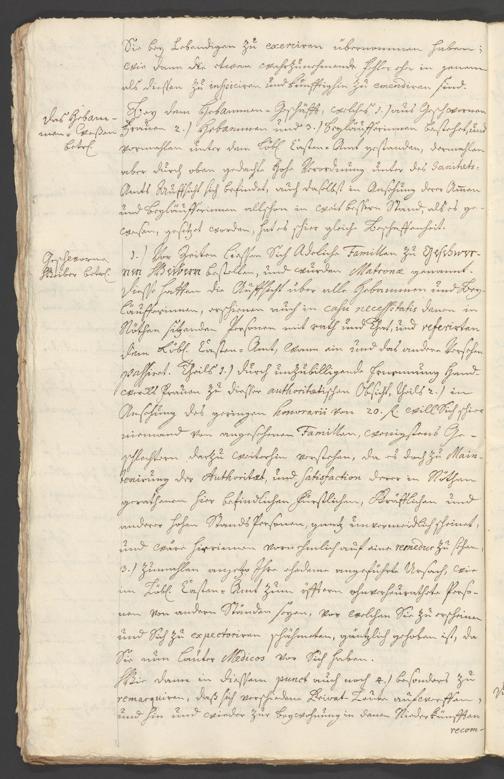 Sie bey Lebendigen zu exerciren übernommen haben;
wie dann die etwan wahrzunehmende Fehler ehe in genere
als diesten zu inspiciren und künfftighin zu emendiren sind.
Das Hebam-
men-Weesen
betrl.
Bey dem Hebammen-Geschäfft, welches 1.) aus Geschwornen
Frauen 2.) Hebammen und 3.) Beyläufferinnen bestehet, und
vormahlen unter dem Löbl. Casten-Amt gestanden, dermahlen
aber durch oben gedachte Hohe Verordnung unter des Sanitæts-
Amts Aufsicht sich befindet, auch daselbst in Ansehung derer Ammen
und Beyläufferinnen allschon in weit bessern Stand, als es ge-
wesen, gesetzt worden, hat es hier gleiche Beschaffenheit.
Geschworne
Weiber betrl.
1.) Vor Zeiten liessen Sich Adeliche Familien zu Geschwor-
nen Weibern bestellen, und wurden Matronæ genannt.
Diese hatten die Aufsicht über alle Hebammen und Bey-
läufferinnen, erschienen auch in casu necessitatis denen in
Nöthen sitzenden Personen mit rath und That, und referirten
dem Löbl. Casten-Amt, wann ein und das andere Versehen
passiret. Theils 1.) durch unzubilligende Ernennung Hand-
wercks Frauen zu dieser authoritætischen Obsicht, theils 2.) in
Ansehung des geringen honorarii von 20. f. will Sich hier
niemand von angesehenen Familien, wenigstens Ge-
schlechtern darzu weiterhin verstehen, da es doch zu Main-
tenirung der Authoritæt, und Satisfaction derer in Nöthen
gerathenen hier befindlichen Fürstlichen, Gräfflichen und
anderer hohen Stands Personen, gantz unvermeidlich scheinet,
und wäre hierinnen vornehmlich auf eine remedur zu sehen,
3.) Zumahlen anjezo Ihre ehedeme angeführte Ursach, wie
im Löbl. Casten-Amt zum öfftern ohnverheurathete Perso-
nen von andern Ständen seyen, vor welchen Sie zu erscheinen
und Sich zu expectoriren schämeten, gäntzlich gehoben ist, da
Sie nun lauter Medicos vor Sich haben.
Wie dann in diesem punct auch noch 4.) besonders zu
remarquiren, daß sich verschiedene Privat Leute aufwerffen,
und hin und wieder zur beywohnung in denen Niederkünfften
recom-